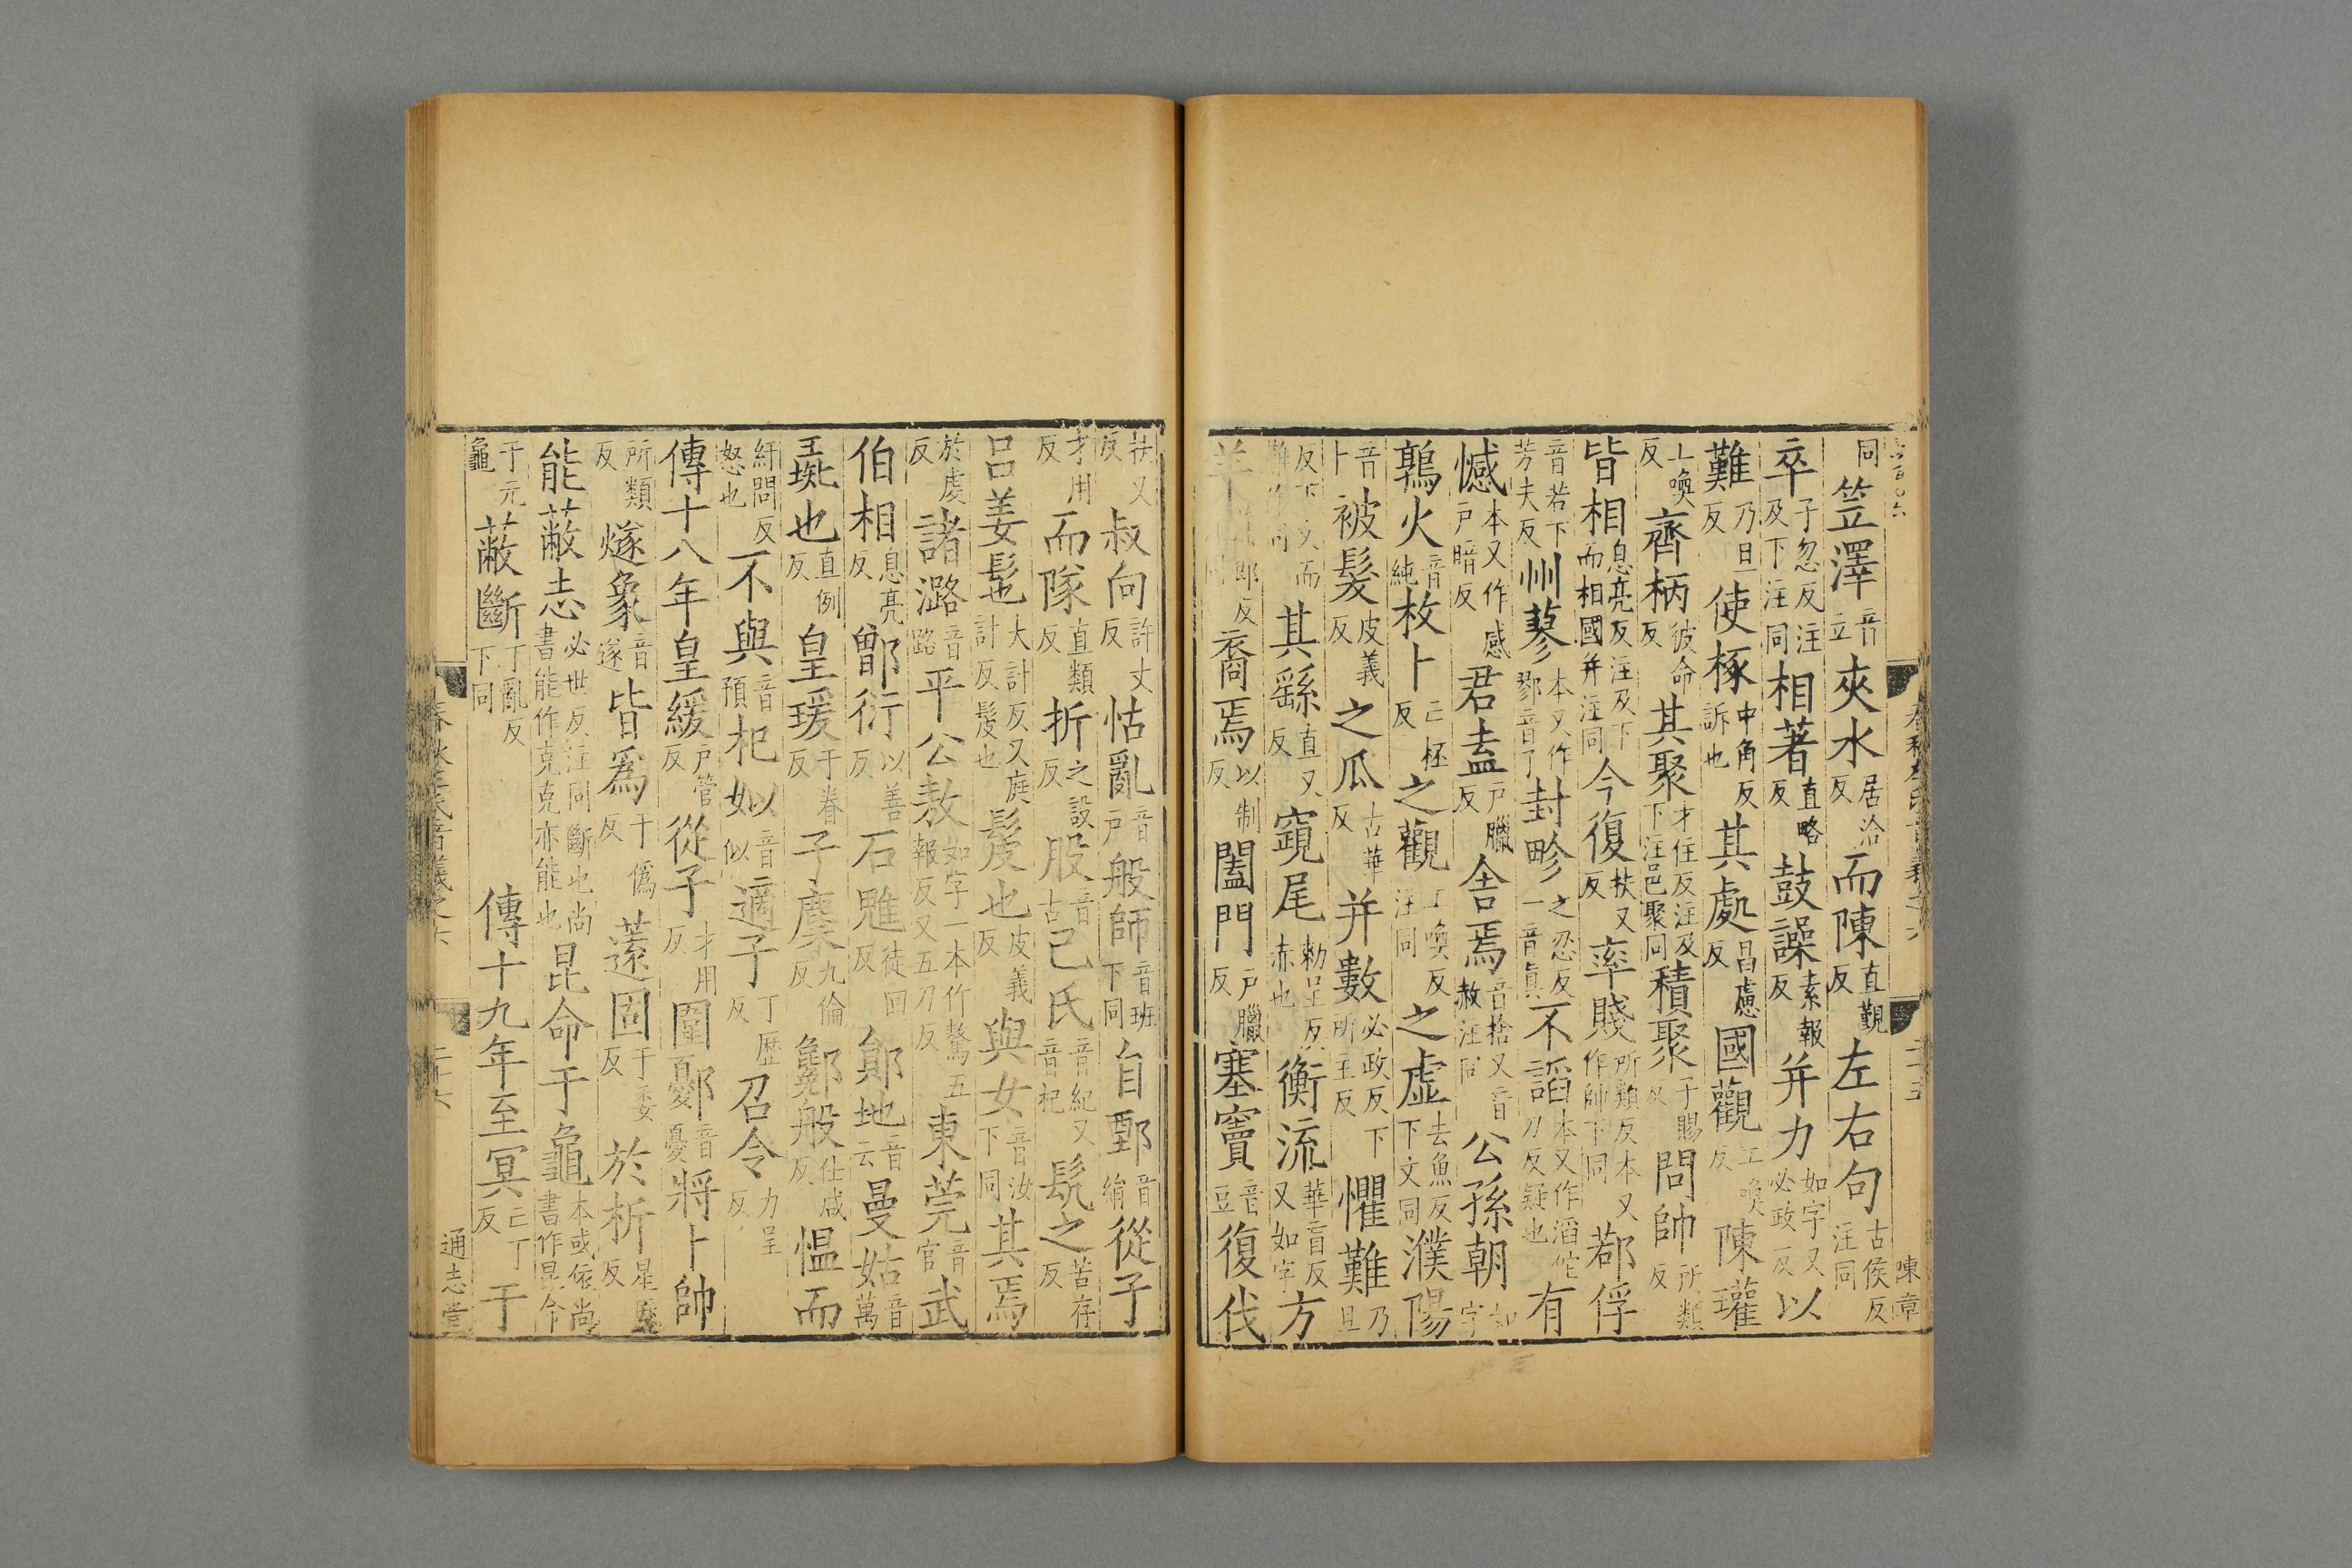 同笠澤音立夾水居洽反而陳直覲反左右句古侯反注同
卒子忽反注及下注同相著直略反鼓譟素報反并力如字又必政反以
難乃旦反使椓中角反訴也其處昌慮反國觀工喚反陳瓘
工喚反齊柄彼命反其聚才住反注及下注邑聚同積聚子賜反問帥所類反
皆相息亮反注及下而相國并注同今復扶又反率賤所類反本又作帥下同鄀俘
音若下芳夫反州蓼本又作鄝音了封畛之忍反一音真不謟本又作滔佗刀反疑也有
憾本又作感戸暗反君盍戸臘反舍焉音捨又音赦注同公孫朝如字
鶉火音純枚卜亡杯反之觀工喚反注同之虛去魚反下文同濮陽
音卜被髮皮義反之瓜古華反并數必政反下所主反懼難乃旦
反下文而難作同其繇直又反窺尾勑呈反赤也衡流華盲反又如字方
羊反裔焉以制反闔門戸臘反塞竇音豆復伐
扶又反叔向許丈反怙亂音戸般師音班下同自鄄音絹從子
才用反而隊直類反折之設反股音古己氏音紀又音杞髡之苦存反
呂姜髢大計反又庭計反髲也髲也皮義反與女音汝下同其焉
於虔反諸潞音路平公敖如字一本作驁五報反又五刀反東莞音官武
伯相息亮反鄫衍以善反石魋徒回反鄖地音云曼姑音萬
彘也直例反皇瑗于眷反子麇九倫反鄓般仕咸反愠而
紆問反怒也不與音預杞姒音似適子丁歷反召令力呈反
傳十八年皇緩戸管反從子才用反圍鄾音憂將卜帥
所類反燧象音遂皆爲于僞反薳固于委反於析星歷反
能蔽志必世反注同斷也尚書能作克克亦能也昆命于龜本或依尚書作昆今
于元龜蔽斷丁亂反下同傳十九年至冥亡丁反于
春秋左氏音義之六
二十六
通志堂